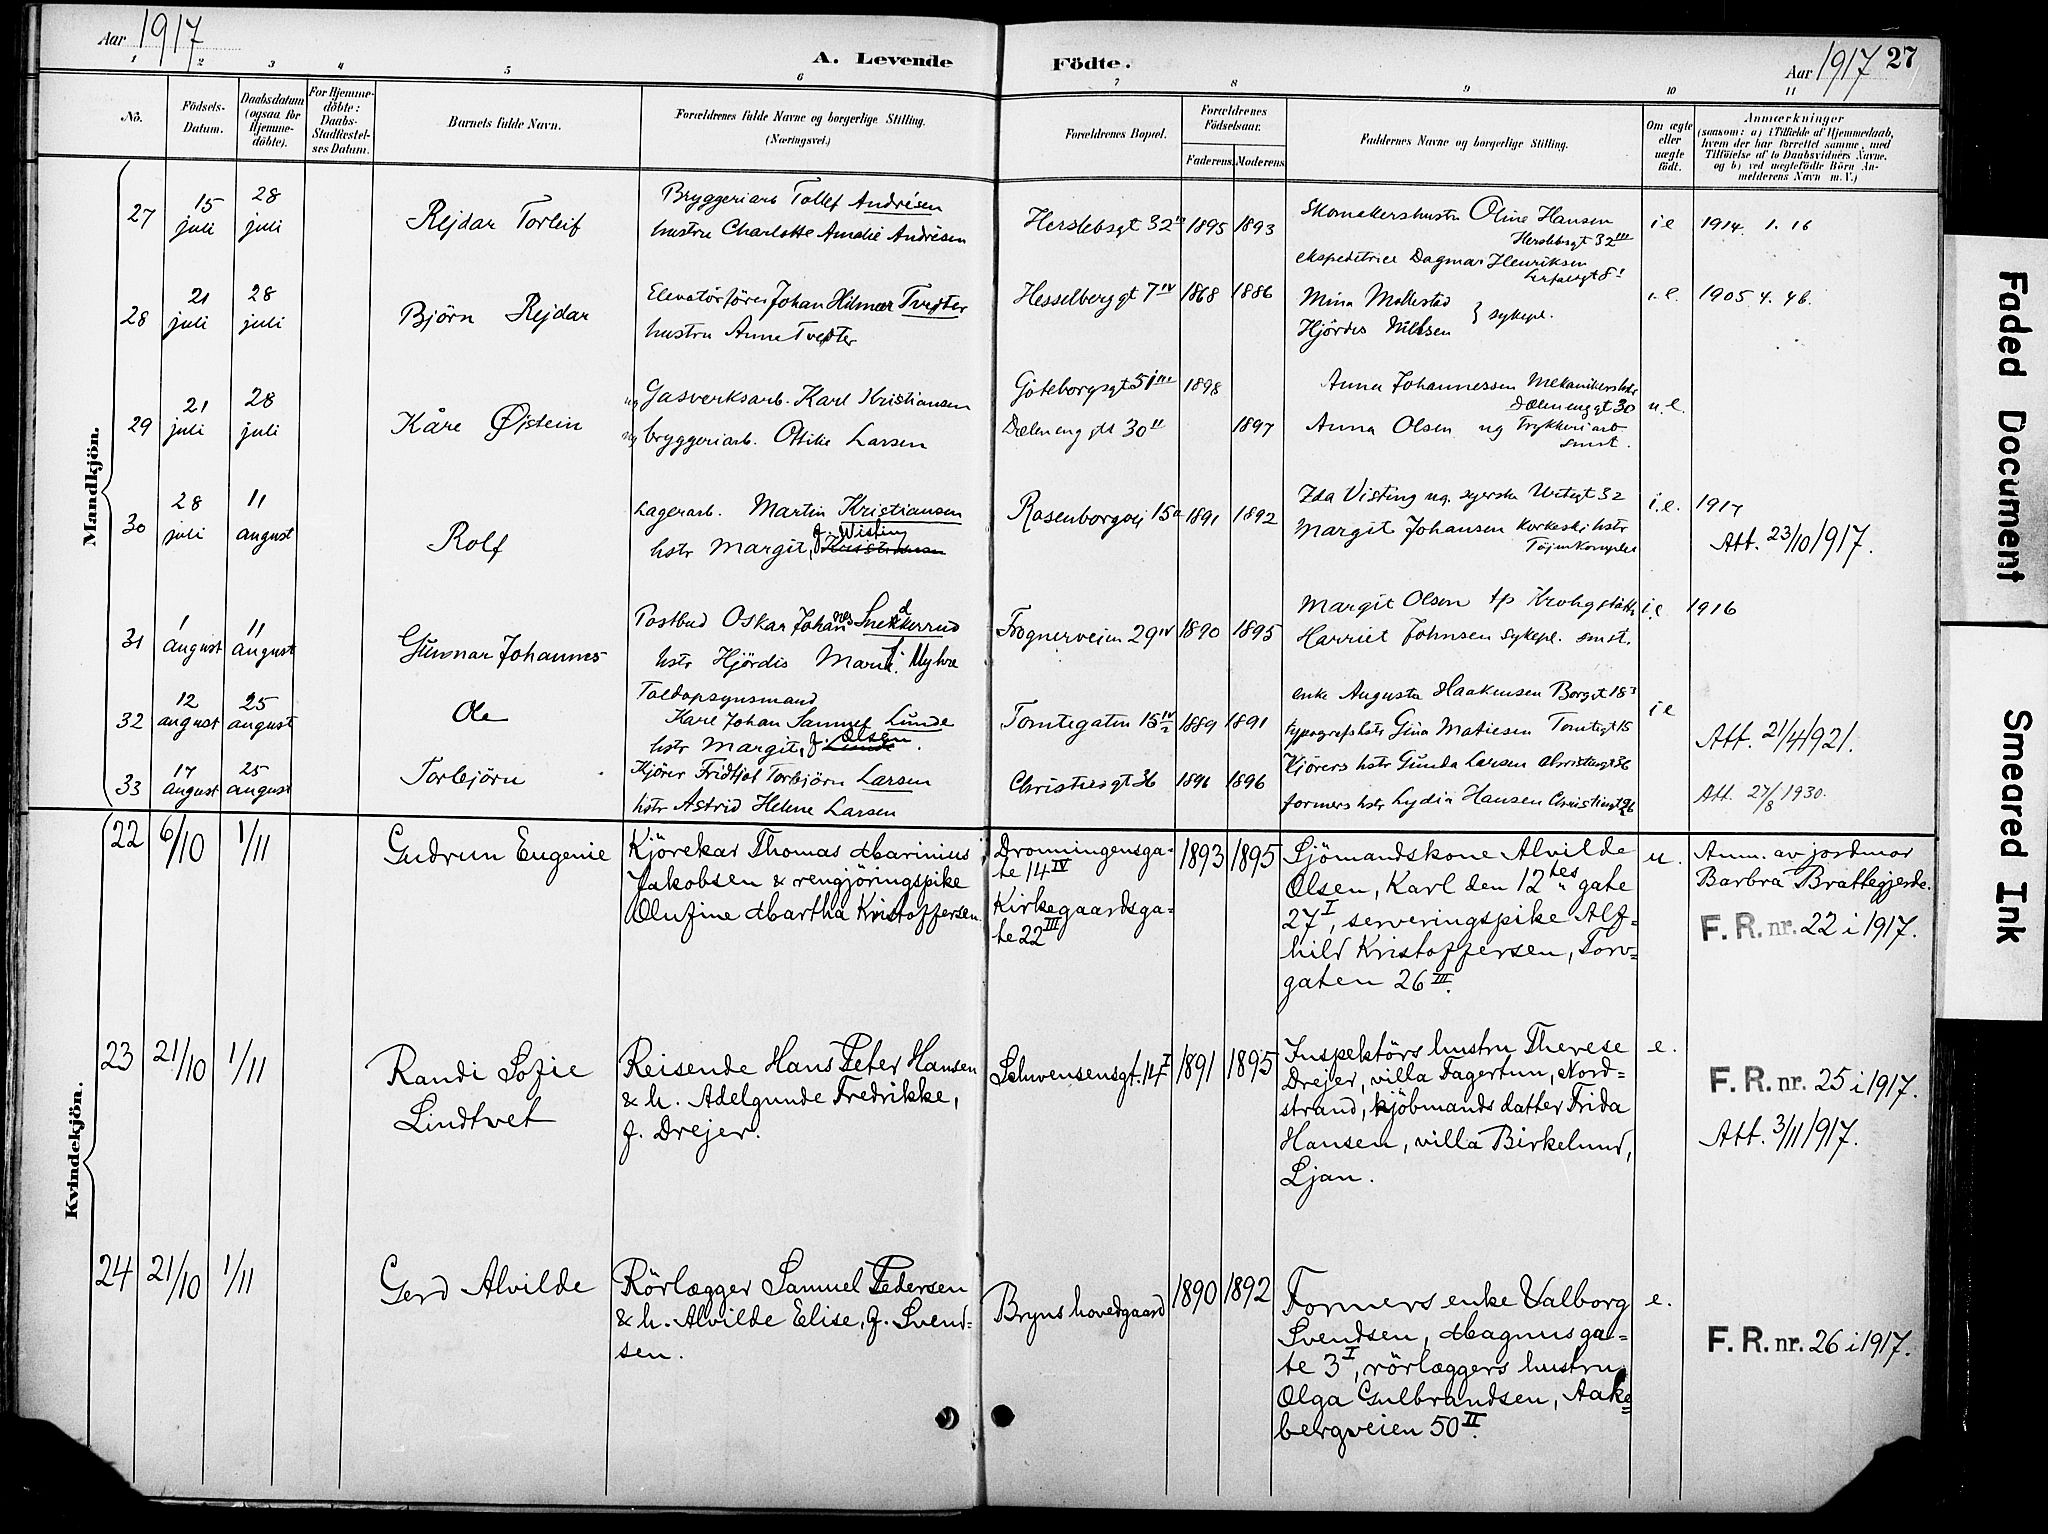 Aar 1917
A. Levende Födte.
Aar 1917 27
1 2 3 4 5 6 7 8 9 10 11
Nö.
Födsels-
Datum.
Daabsdatum
(ogsaa for
Hjemme-
döbte).
For Hjemme-
döbte:
Daabs-
Stadfæstel-
ses Datum.
Barnets fulde Navn.
Forældrenes fulde Navne og borgerlige Stilling.
(Næringsvei.)
Forældrenes Bopæl.
Forældrenes
Födselsaar.
Faderens. Moderens.
Faddernes Navne og borgerlige Stilling.
Om ægte
eller
uægte
födt.
Anmærkninger
(saasom: a) i Tilfælde af Hjemmedaab,
hvem der har forrettet samme, med
Tilföielse af to Daabsvidners Navne,
og b) ved uægtefödte Börn An-
melderens Navn m. V.)
Mandkjön.
27
15
juli
28
juli
Rejdar Torleif
Bryggeriarb Tollef Andrésen
hustru Charlotte Amalie Andrésen
Herslebsgt 32
1895 1893
Skomakershustru Oline Hansen
Herslebsgt 32 III
ekspeditrice Dagmar Henriksen
i e
1914. 1. 16
28
21
juli
28
juli
Björn Rejdar
Elevatörförer Johan Hilmar Tvedter
hustru Anne Tvedter
Hesselberggt 7 IV
1868 1886
Mina Mollestad
Hjördis Nilsen } sykepl.
i. e.
1905. 4. 46.
29
21
juli
28
juli
Kåre Øistein
ug Gasverksarb. Karl Kristiansen
ug bryggeriarb. Ottilie Larsen
Göteborgsgt 51 III
Dælenenggt 30 II
1898
1897
Anna Johannessen Mekanikershstr
Dælenenggt 30
Anna Olsen ug Trykkeriarb
smst.
u. e.
30
28
juli
11
august
Rolf
Lagerarb. Martin Kristiansen
hstr Margit, f. Wisting Kristiansen
Rosenborggt 15
1891 1892
Ida Visting ug. syerske Urtegt 32
Margit Johansen
i. e.
1917
Att. 23/10 1917.
31
1
august
11
august
Gunnar Johannes
Postbud Oskar Johannes Snekkerrud
hstr Hjördis Marie f. Myhre
Frognerveien 29 IV
1890 1895
Margit Olsen tp
Harriet Johnsen sykepl. smst.
i. e
1916
32
12
august
25
august
Ole
Toldopsynsmand
Karl Johan Samuel Lunde
hstr Margit, f. Olsen Lunde.
Tomtegaten 15
1889 1891
enke Augusta Haakensen Borggt 18
typografhstr Gina Matiesen Tomtegt 15
i e
Att. 21/4 1921.
33
17
august
25
august
Torbjörn
Kjörer Fridtjof Torbjörn Larsen
hstr Astrid Helene Larsen
Christiesgt 36
1896 1896
Kjörers hstr Gunda Larsen Christiesgt 36
formers hstr Lydia Hansen Christiesgt 26
Att. 27/8 1930.
Kvindekjön.
22
6/10
1/11
Gudrun Eugenie
Kjörekar Thomas Marinius
Jakobsen & rengjöringspike
Olufine Martha Kristoffersen.
Dronningensga-
te 14 IV
Kirkegaardsga-
te 22 III
1893 1895
Sjömandskone Alvilde
Olsen, Karl den 12tes gate
27 I, serveringspike Alf-
hild Kristoffersen, Torv-
gaten 26 III.
u.
Anm. av jordmor
Barbra Brattegjerde.
F. R. nr. 22 i 1917.
23
21/10
1/11
Randi Sofie
Lindtvet
Reisende Hans Peter Hansen
& h. Adelgunde Fredrikke,
f. Drejer.
Schwensensgt. 14 I
1891 1895
Inspektörs hustru Therese
Drejer, villa Fagertun, Nord-
strand, kjöbmands datter Frida
Hansen, villa Birkelund,
Ljan.
e.
F. R. nr. 25 i 1917.
Att. 3/11 1917.
24
21/10
1/11
Gerd Alvilde
Rörlægger Samuel Pedersen
& h. Alvilde Elise, f. Svend-
sen.
Bryns hovedgaard
1890 1892
Formers enke Valborg
Svendsen, Magnusga-
te 3 I, rörlæggers hustru
Olga Gulbrandsen, Aake-
bergveien 50 II.
e.
F. R. nr. 26 i 1917.
Faded Document
Smeared Ink